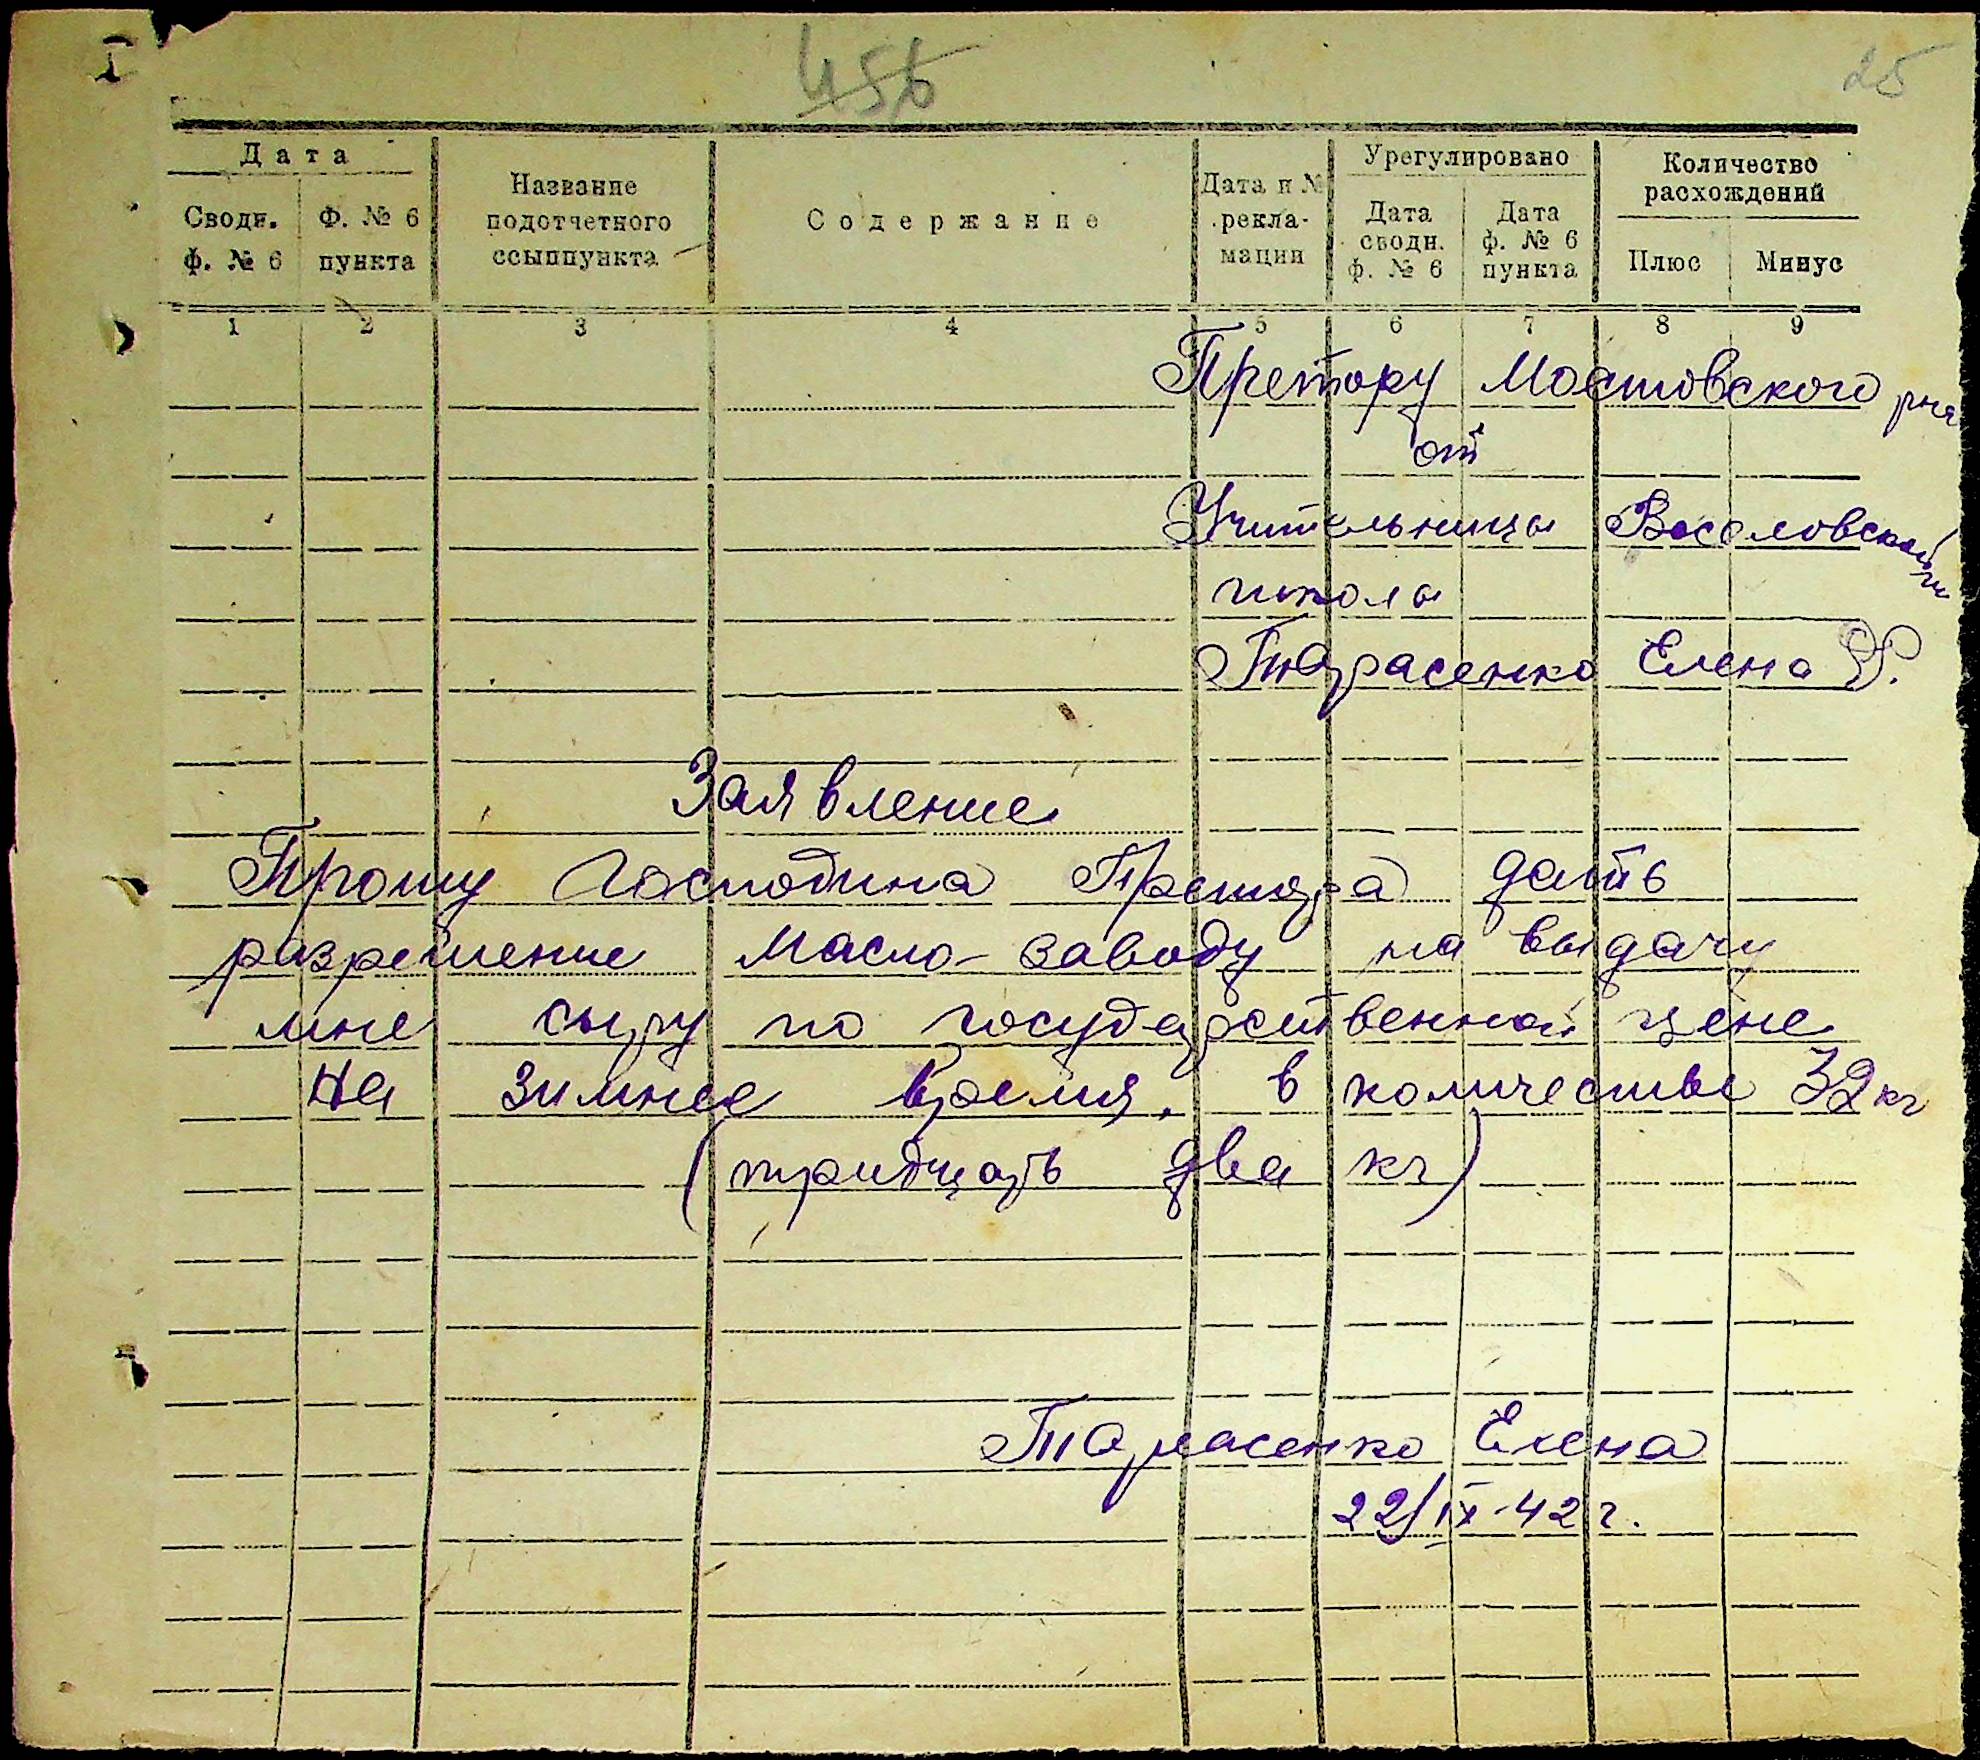 I
456
25
Дата
Сводн. ф. № 6
Ф. № 6 пункта
Название подотчетного ссыппункта
Содержание
Дата и № рекламации
Урегулировано
Дата сводн. ф. № 6
Дата ф. № 6 пункта
Количество расхождений
Плюс
Минус
1 2 3 4 5 6 7 8 9
Претору Мостовского рна
от
Учительницы Веселовской
школы
Тарасенко Елена
Заявление
Прошу Господина Претора дать
разрешение Масло-заводу на выдачу
мне сыру по государственной цене
На зимнее время. в количестве 32 кг
(тридцать два кг)
Тарасенко Елена
22/IX-42 г.